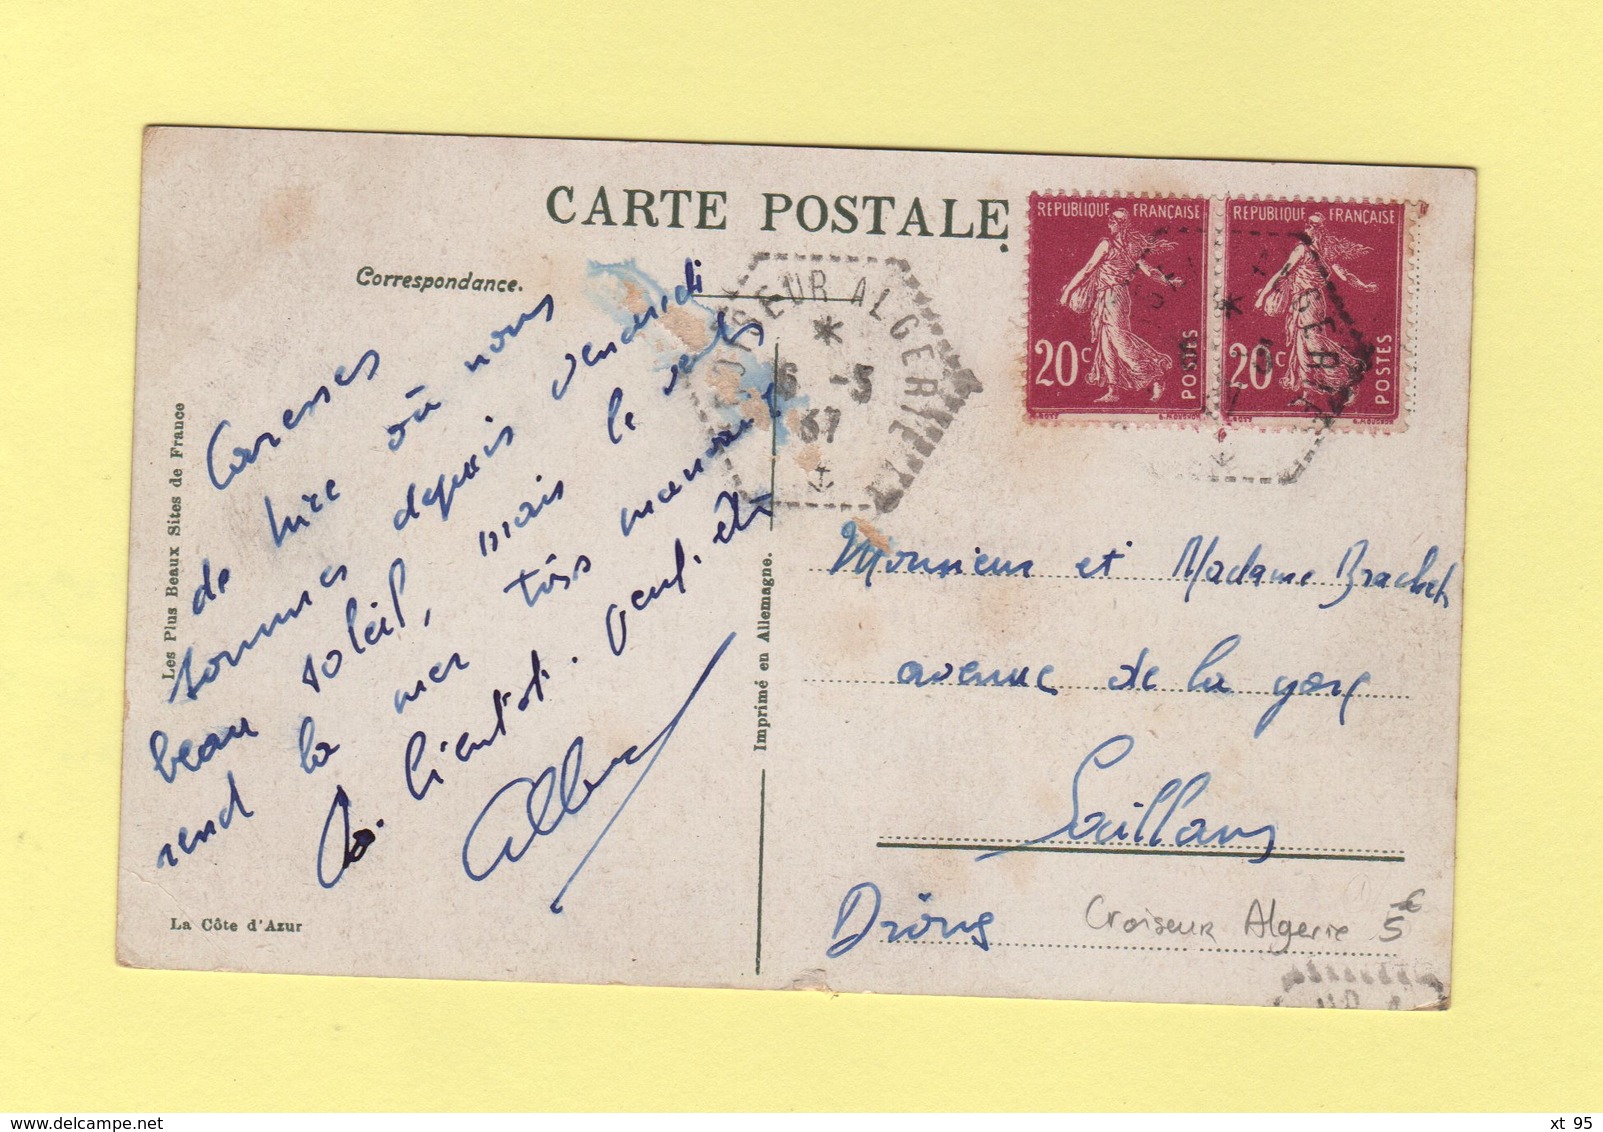 CARTE POSTALE
Correspondance.
RÉPUBLIQUE FRANÇAISE
20c
POSTES
RÉPUBLIQUE FRANÇAISE
20c
POSTES
CROISEUR ALGERIE
6 -3
37
Caresses
de Nice où nous
sommes depuis vendredi
beau soleil, mais le vent
rend la mer très mauvaise
à bientôt. peut-être
Albert
Monsieur et Madame Brachet
avenue de la gare
Saillans
Drôme
Croiseur Algerie 5€
Les Plus Beaux Sites de France
Imprimé en Allemagne.
La Côte d'Azur
xt 95